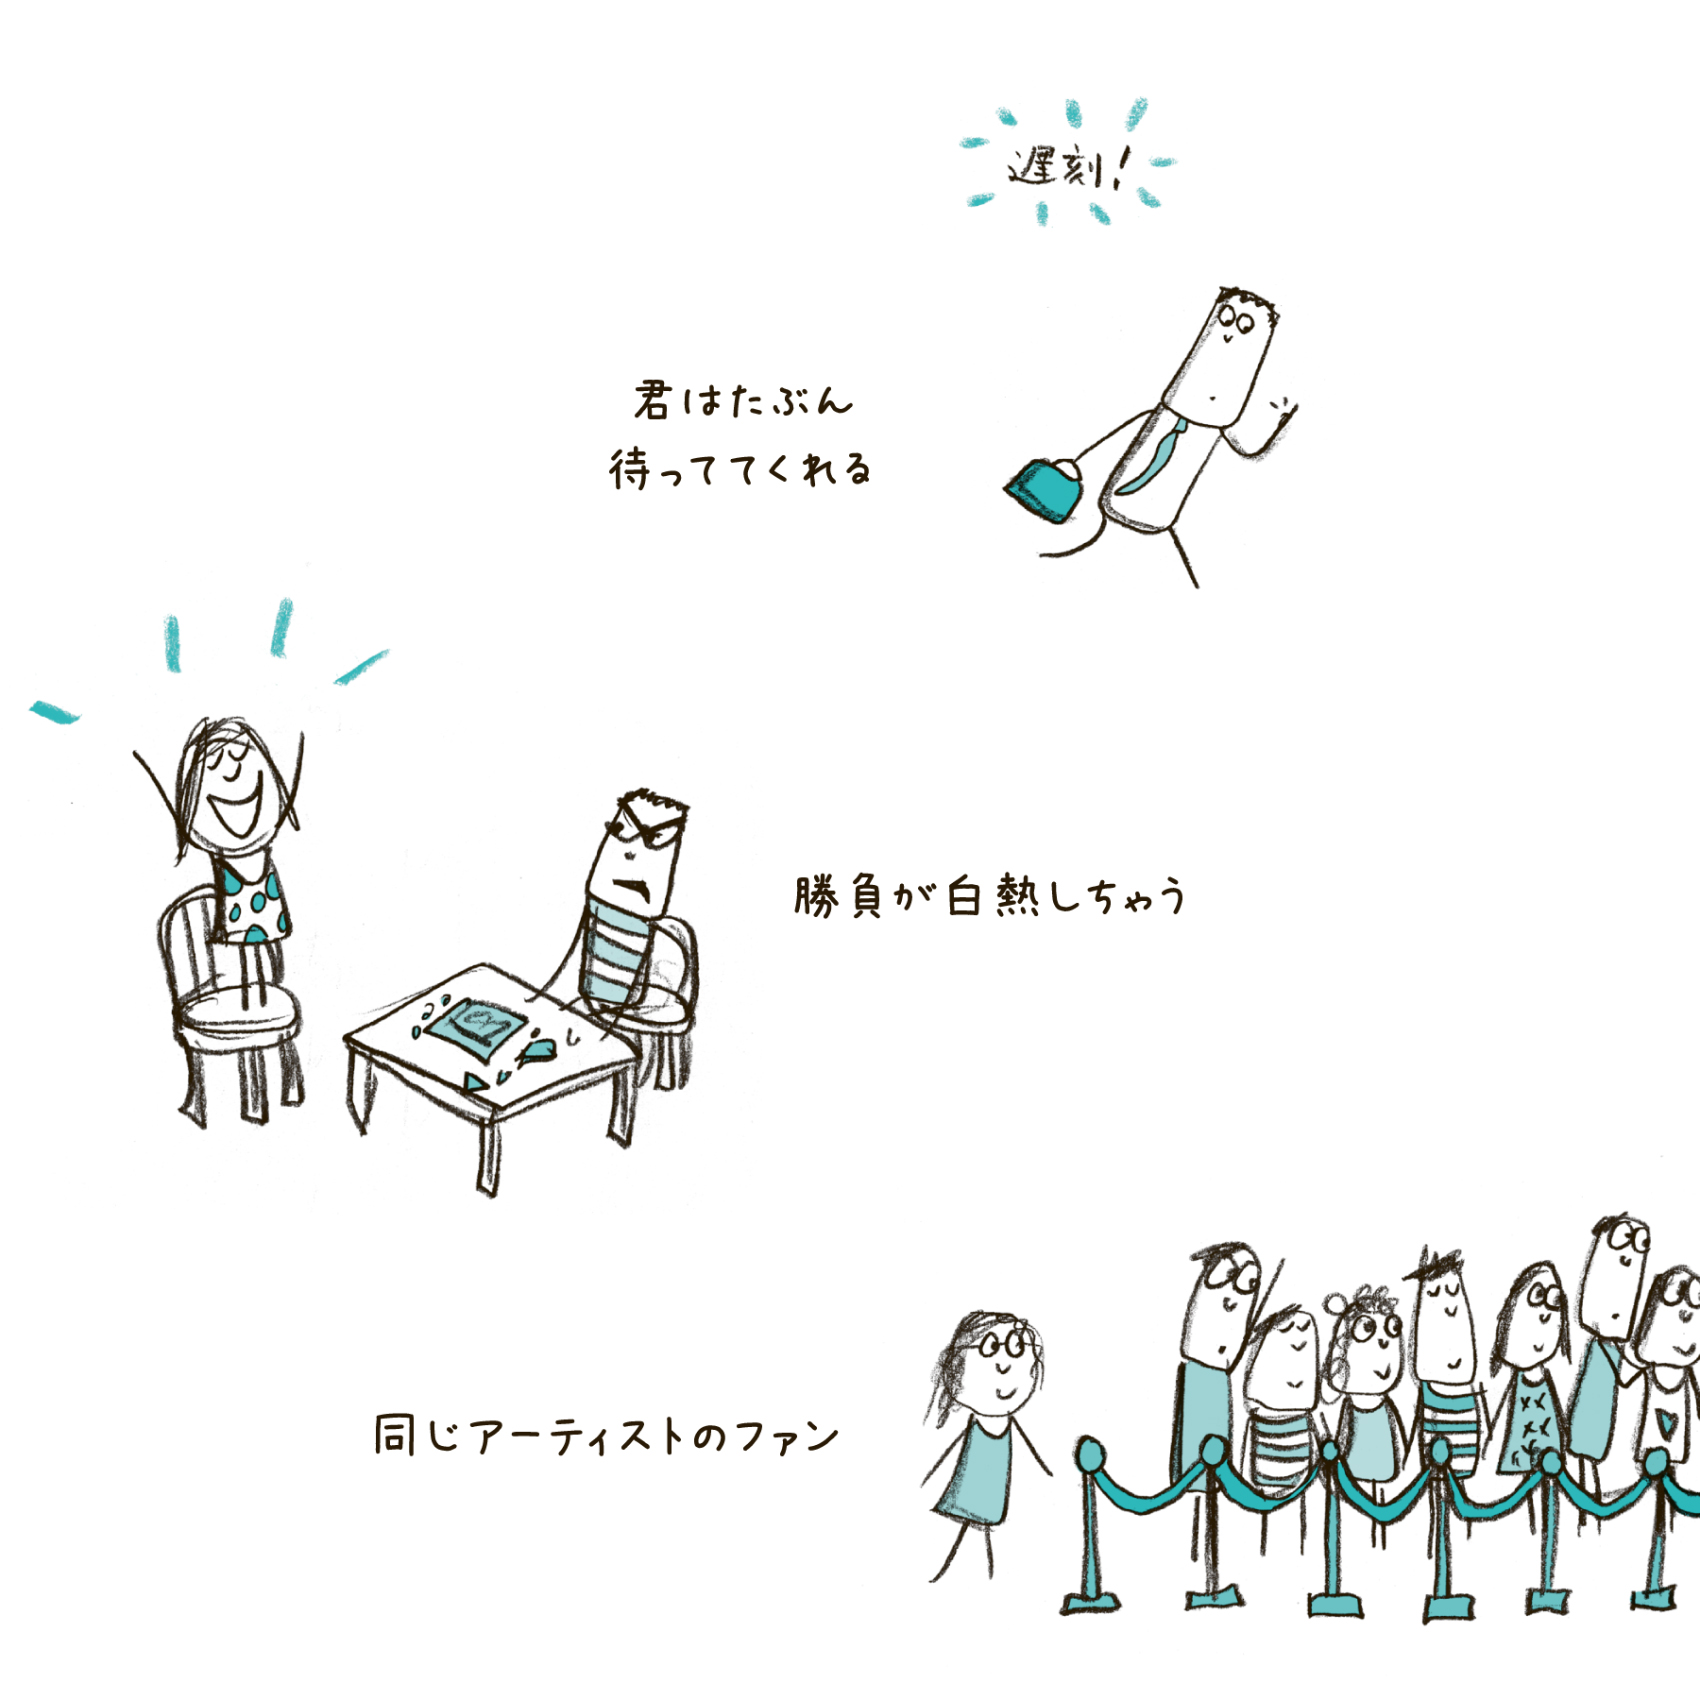 遅刻!
君はたぶん
待っててくれる
勝負が白熱しちゃう
同じアーティストのファン